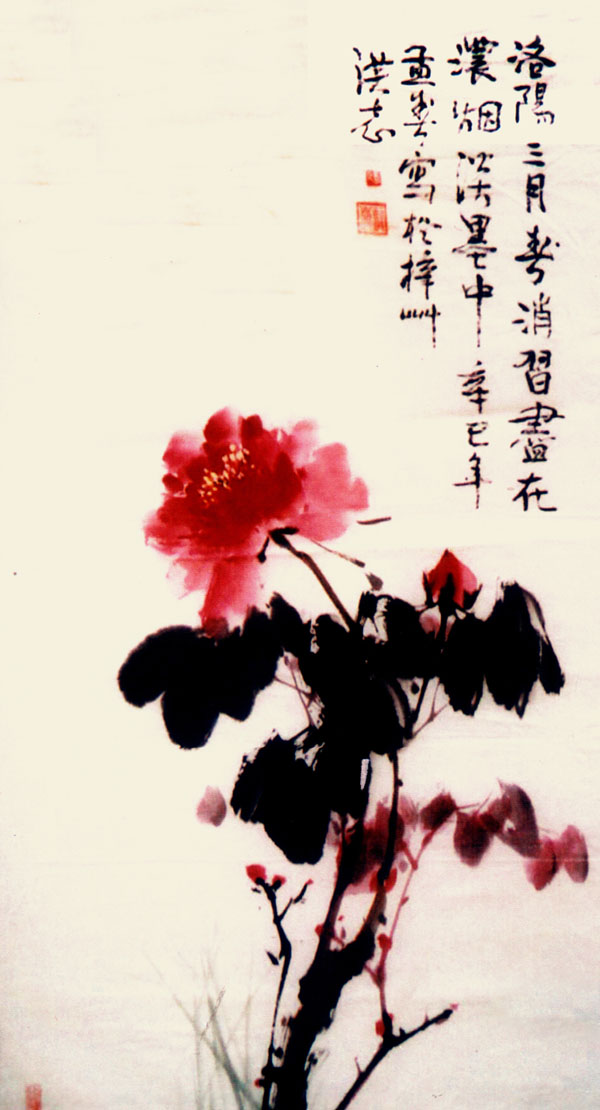 洛陽三月春消習盡在
濃烟淡墨中辛巳年
孟春寫於梓艸
洪志